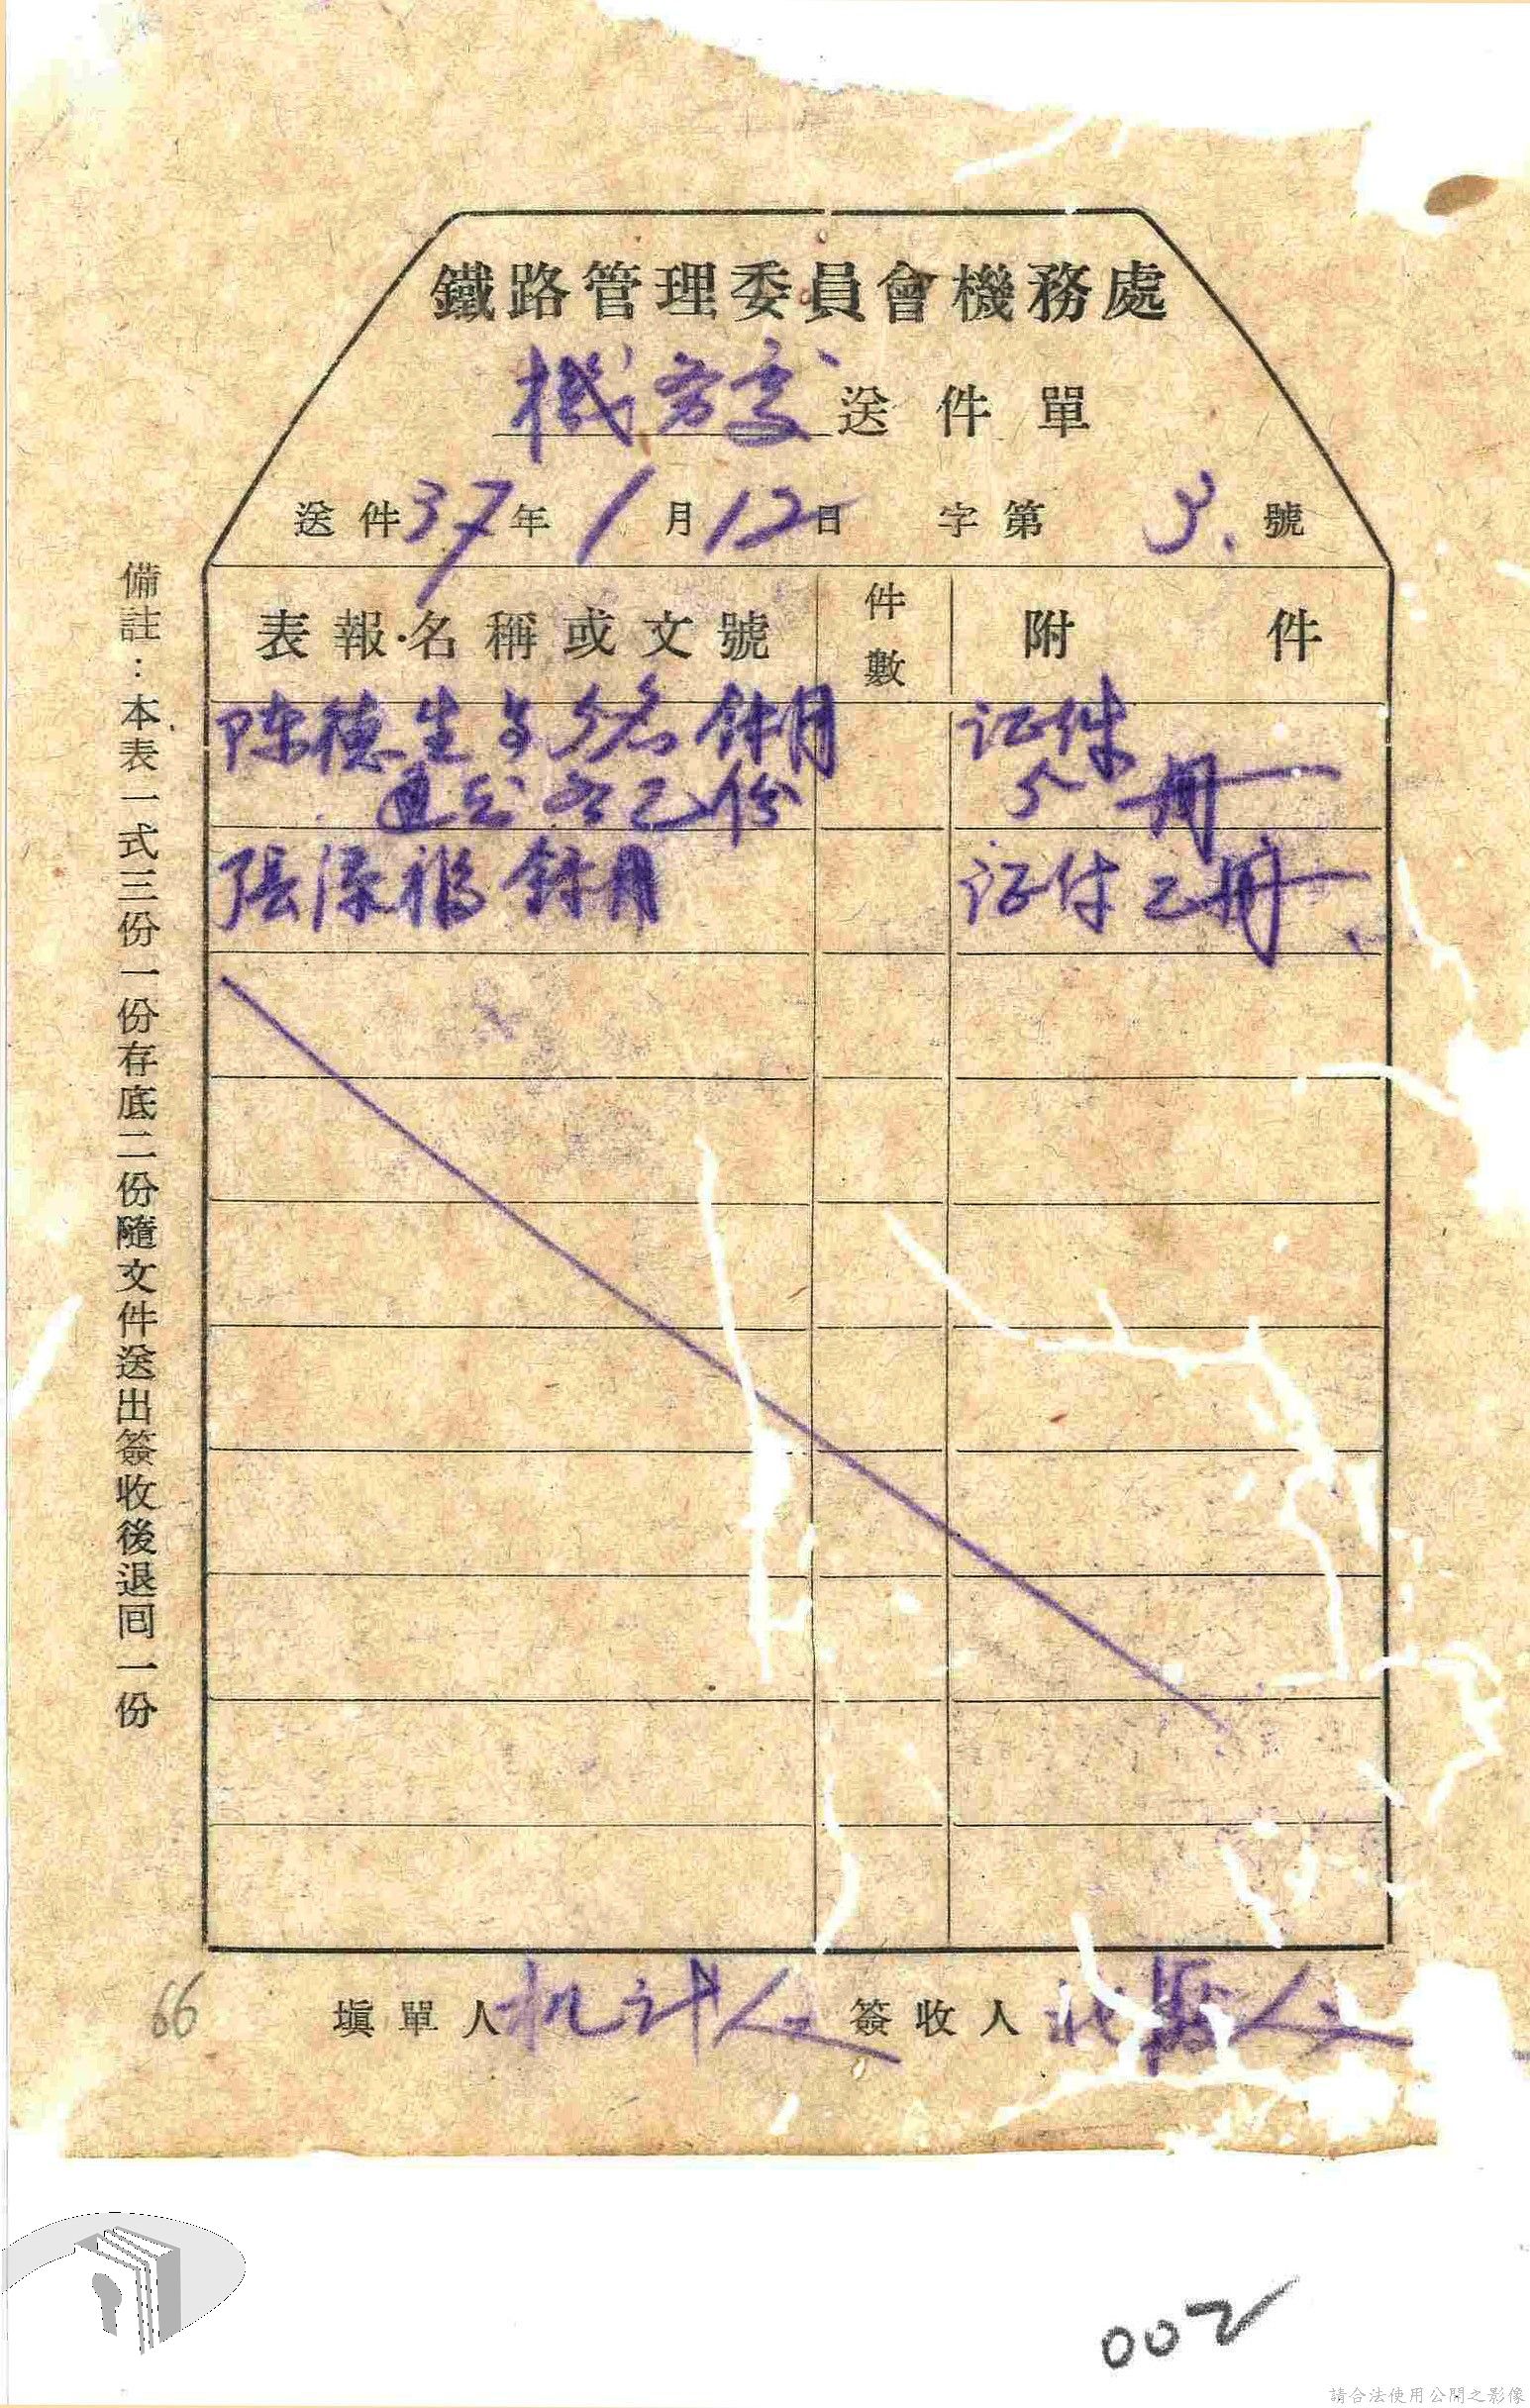 鐵路管理委員會機務處
機務處送件單
送件37年1月12日 字第3.號
表報名稱或文號 件數 附件
陈德生等 名
各乙份
证件
册
張添福
证件乙册
填單人机計人 簽收人
備註：本表一式三份一份存底二份隨文件送出簽收後退回一份
66
002
請合法使用公開之影像